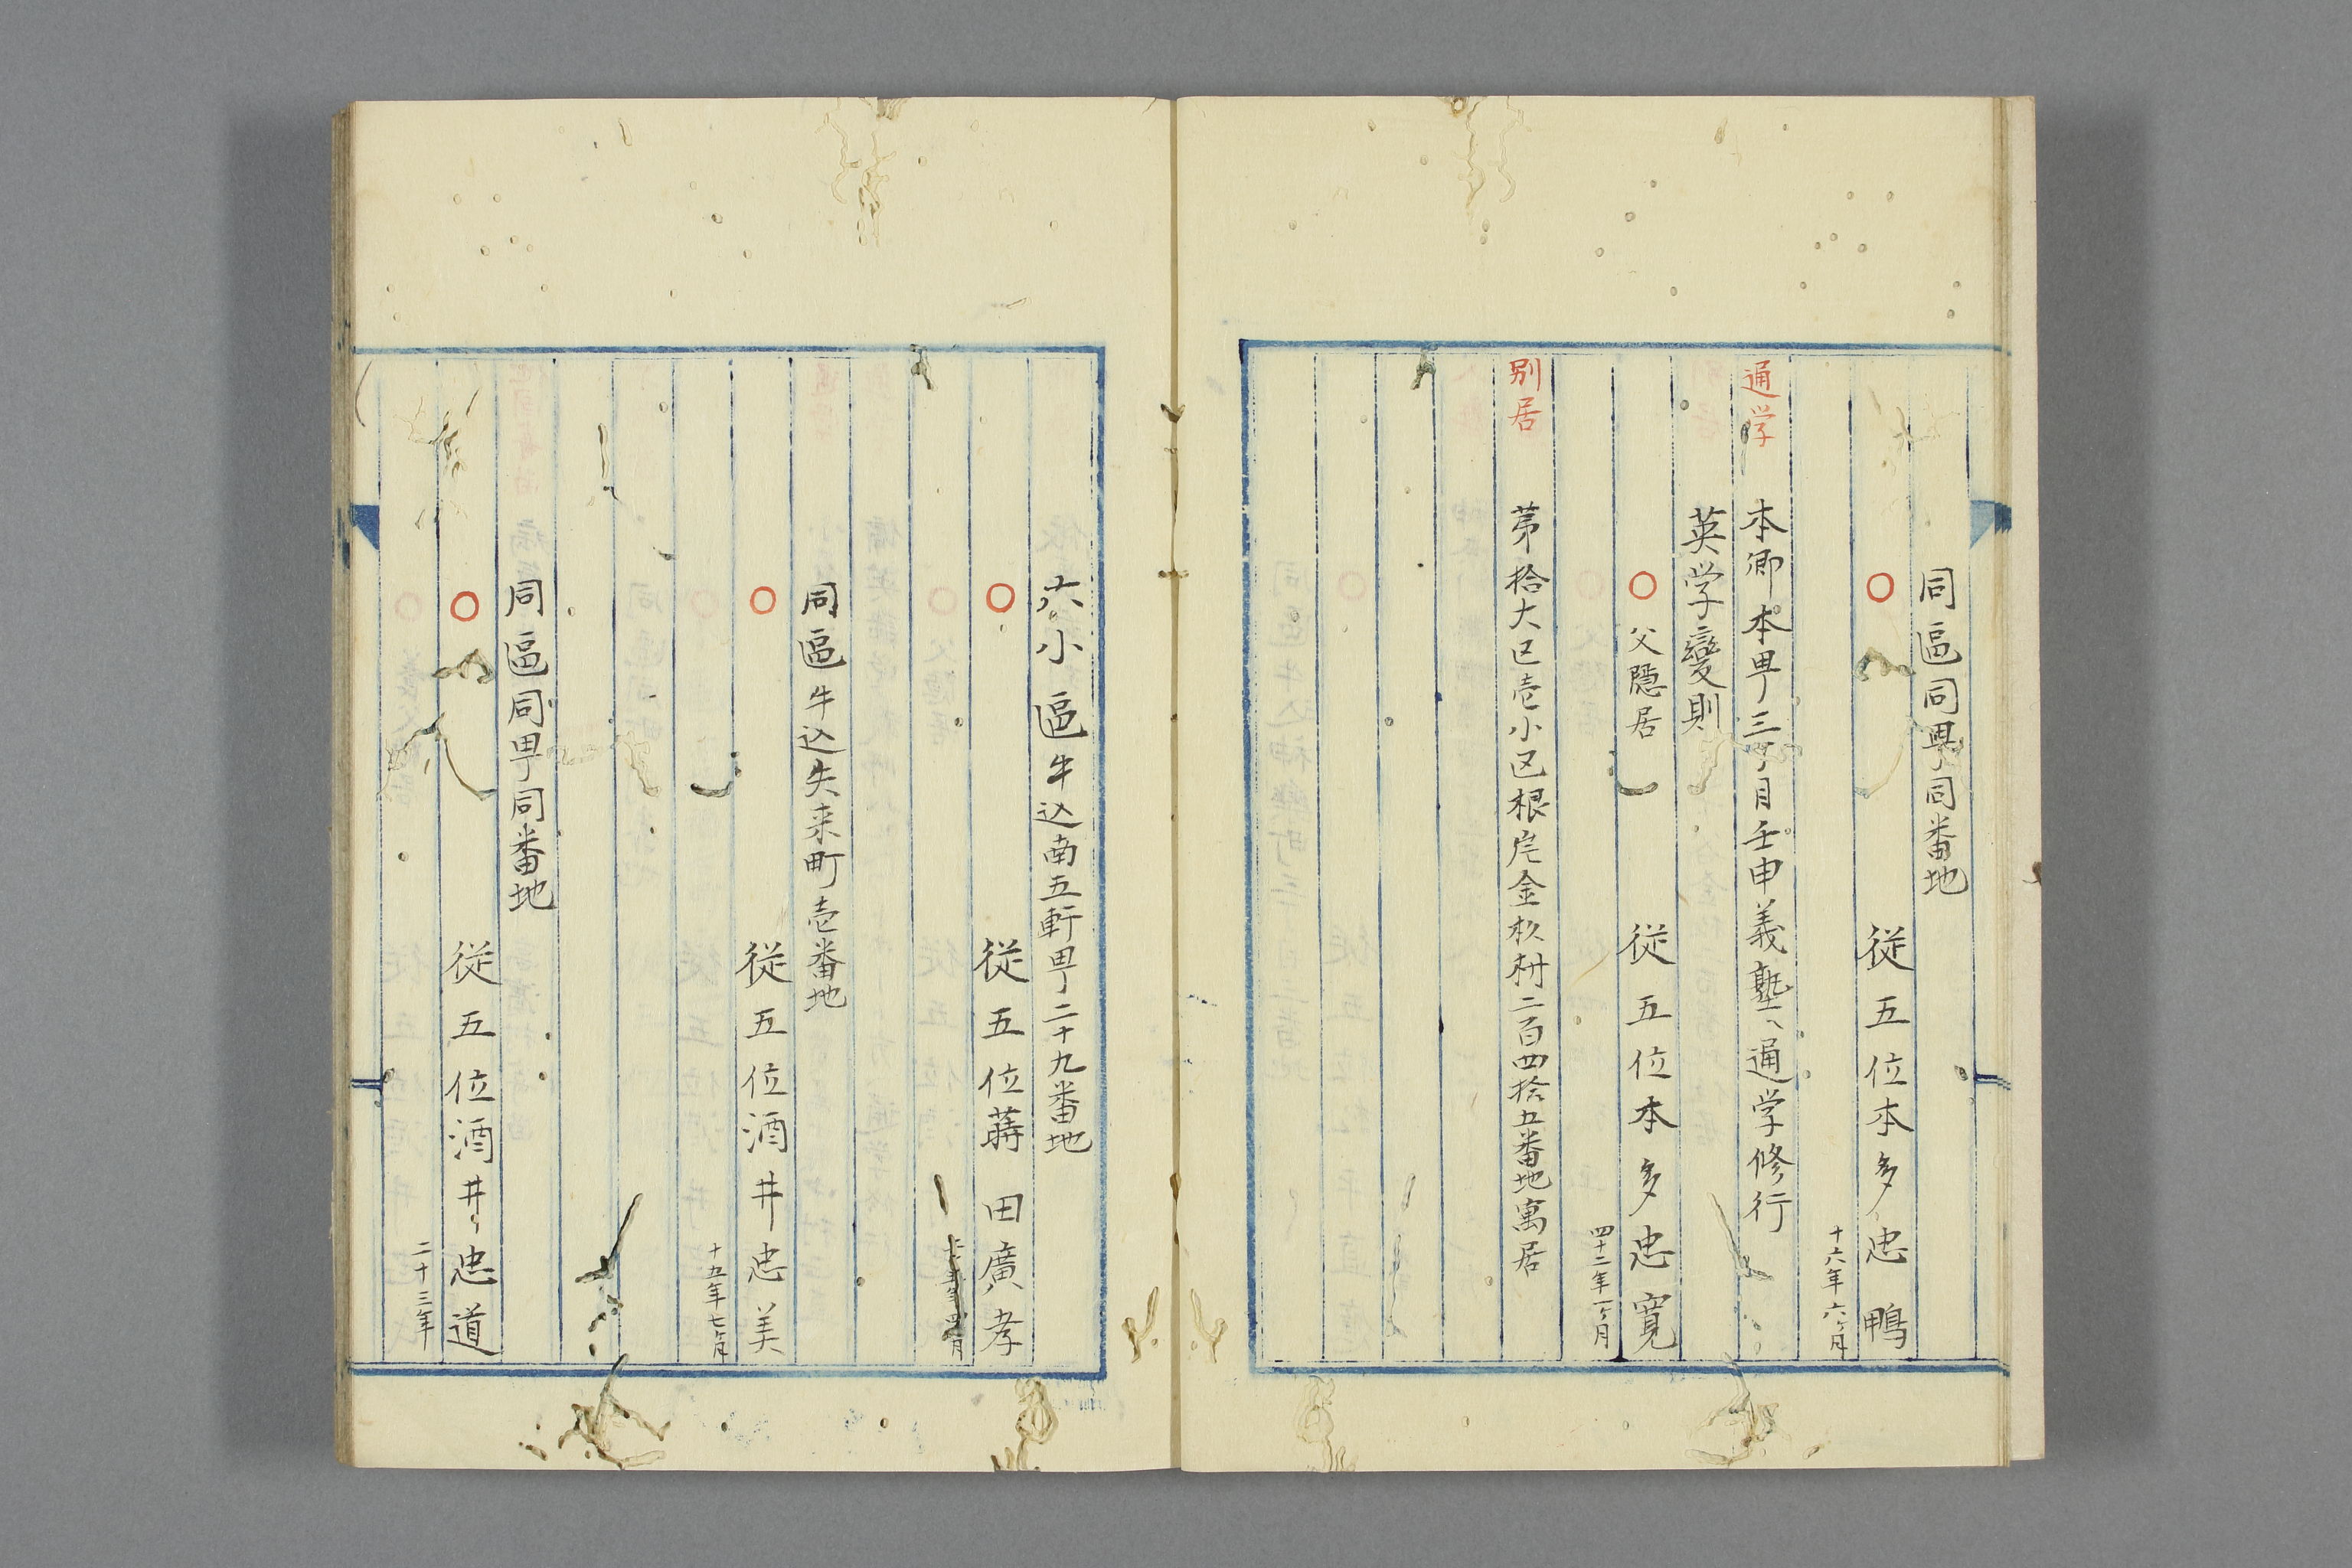 同區同甼同番地
○ 従五位本多忠鵬
十六年六ヶ月
通学 本郷本甼三丁目壬申義塾へ通学修行
英学變則
○ 父隠居 従五位本多忠寛
四十二年一ヶ月
別居 苐拾大区壱小区根岸金杦村二百四拾五番地寓居
六小區牛込南五軒甼二十九番地
○ 従五位蒔田廣孝
同區牛込矢来町壱番地
○ 従五位酒井忠美
十五年七ヶ月
同區同甼同番地
○ 従五位酒井忠道
二十三年